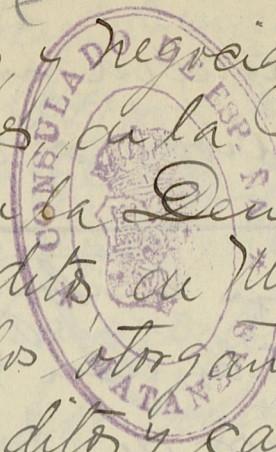 y negocia
es, en la
la Deu
ditos en M
los otorgan
ditos y ca
CONSULADO DE ESPAÑA
MATANZAS